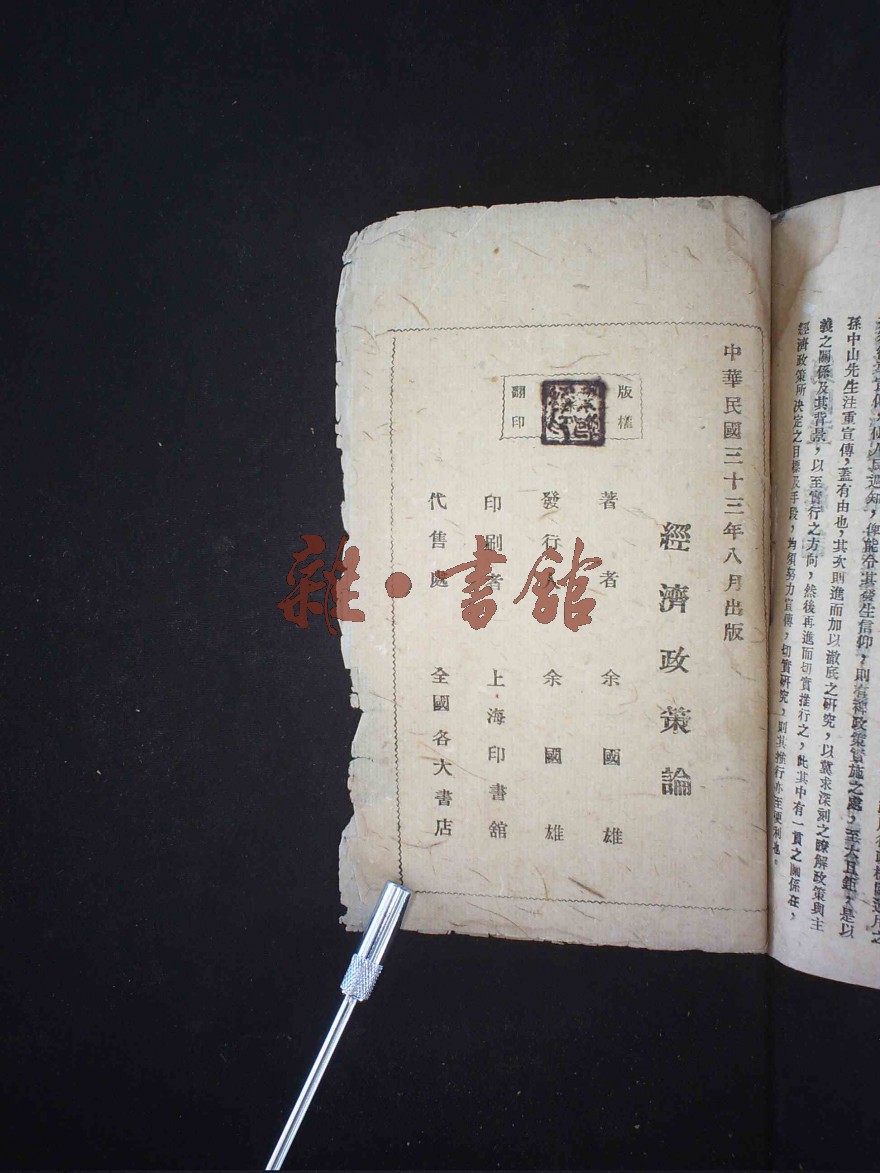 經濟政策所決定之目標及手段，均須努力宣傳，切實研究，則其推行亦至便利也。
義之關係及其背景，以至實行之方向，然後再進而切實推行之，此其中有一貫之關係在，
孫中山先生注重宣傳，蓋有由也，其次則進而加以澈底之研究，以冀求深刻之瞭解政策與主
中華民國三十三年八月出版
經濟政策論
版權
翻印
著者 余國雄
發行人 余國雄
印刷者 上海印書館
代售處 全國各大書店
雜·書館